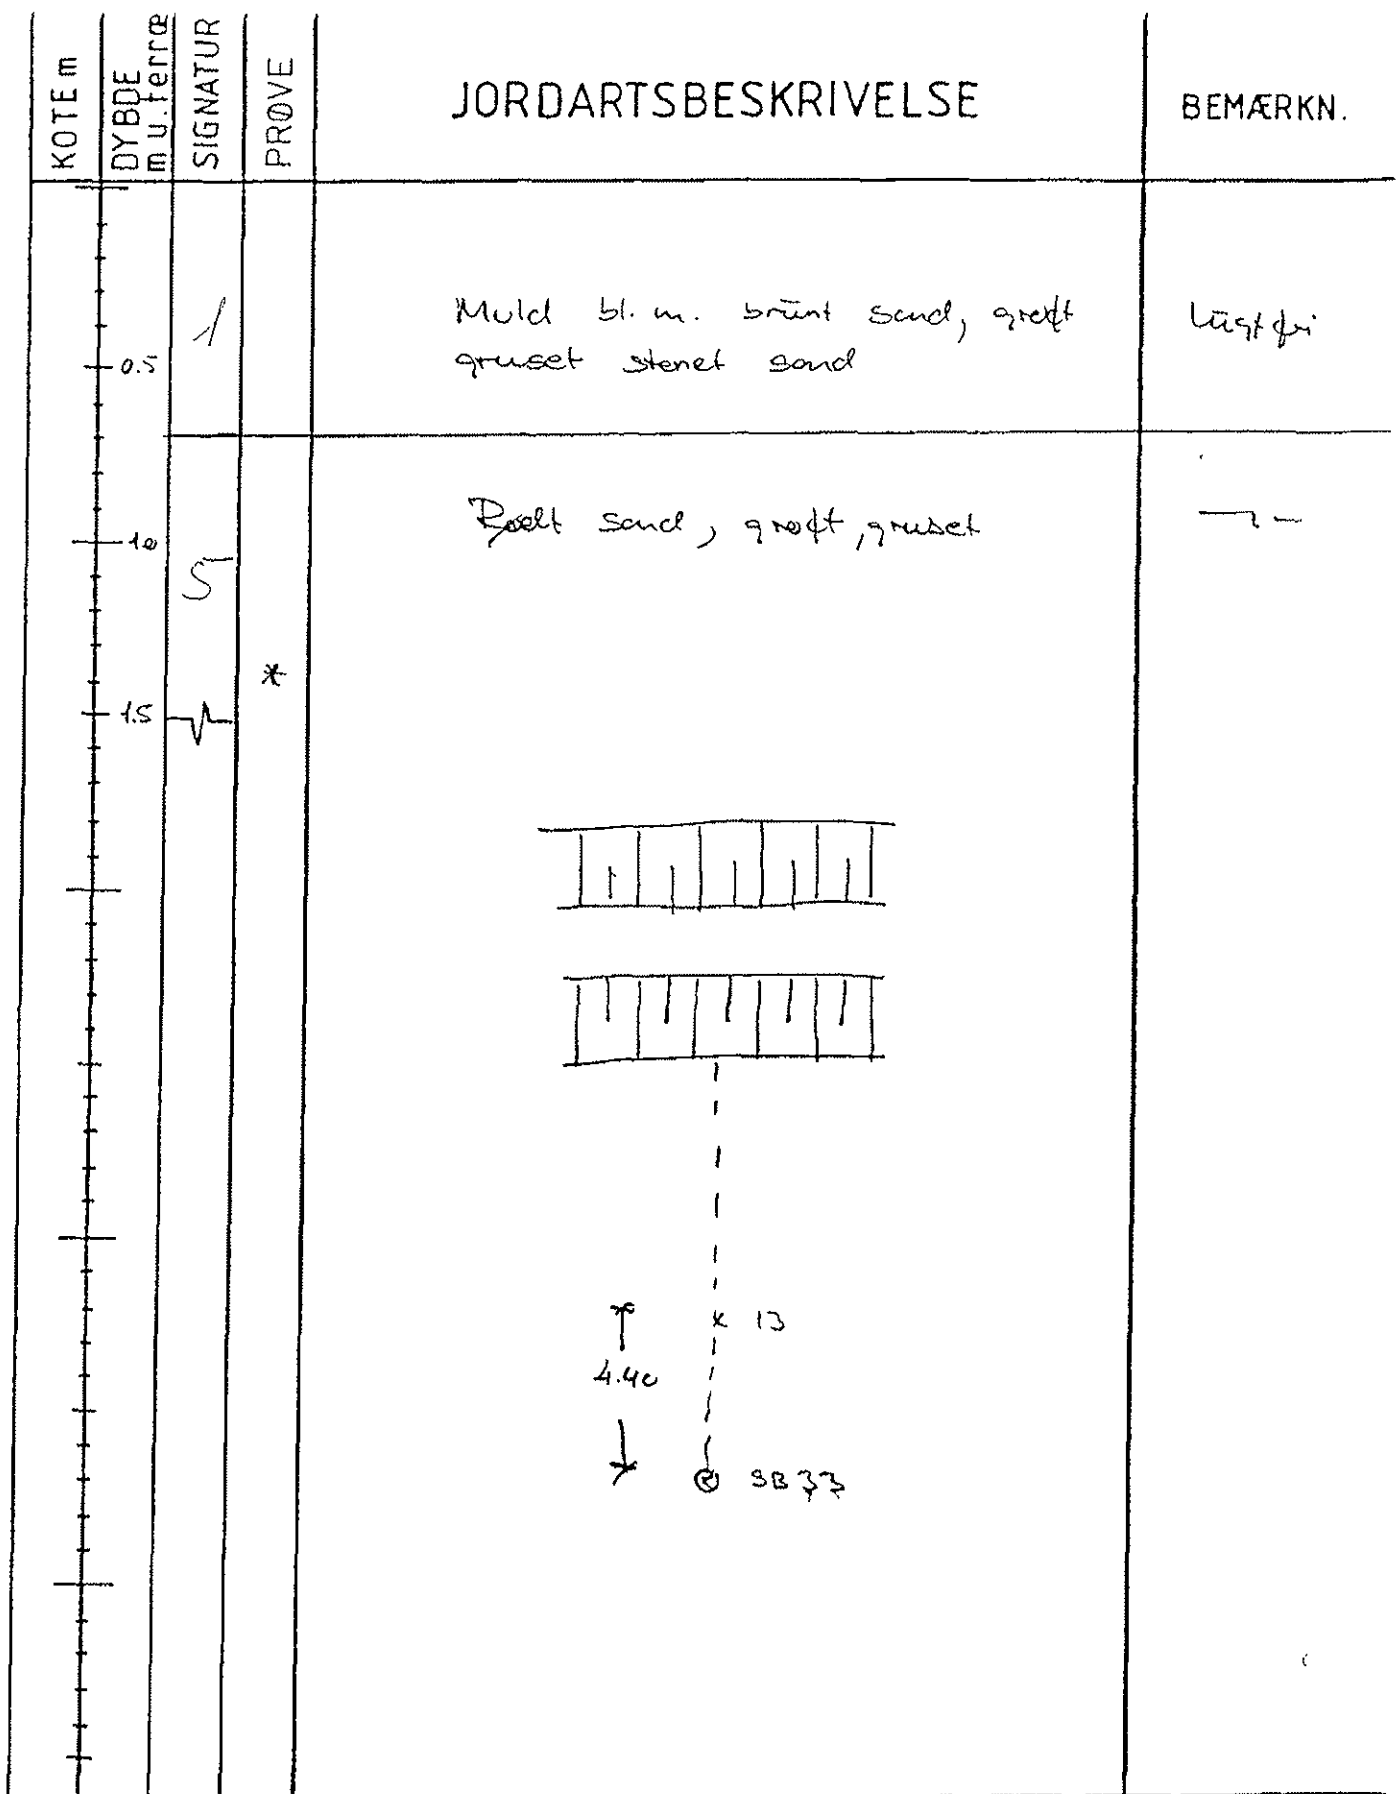 KOTE m
DYBDE
m u. terræ
SIGNATUR
PRØVE
JORDARTSBESKRIVELSE
BEMÆRKN.
1
Muld bl. m. brunt sand, groft
gruset stenet sand
lugtfri
0.5
Rødt sand, groft, gruset
1.0
5
*
1.5
x 13
4.40
SB 33